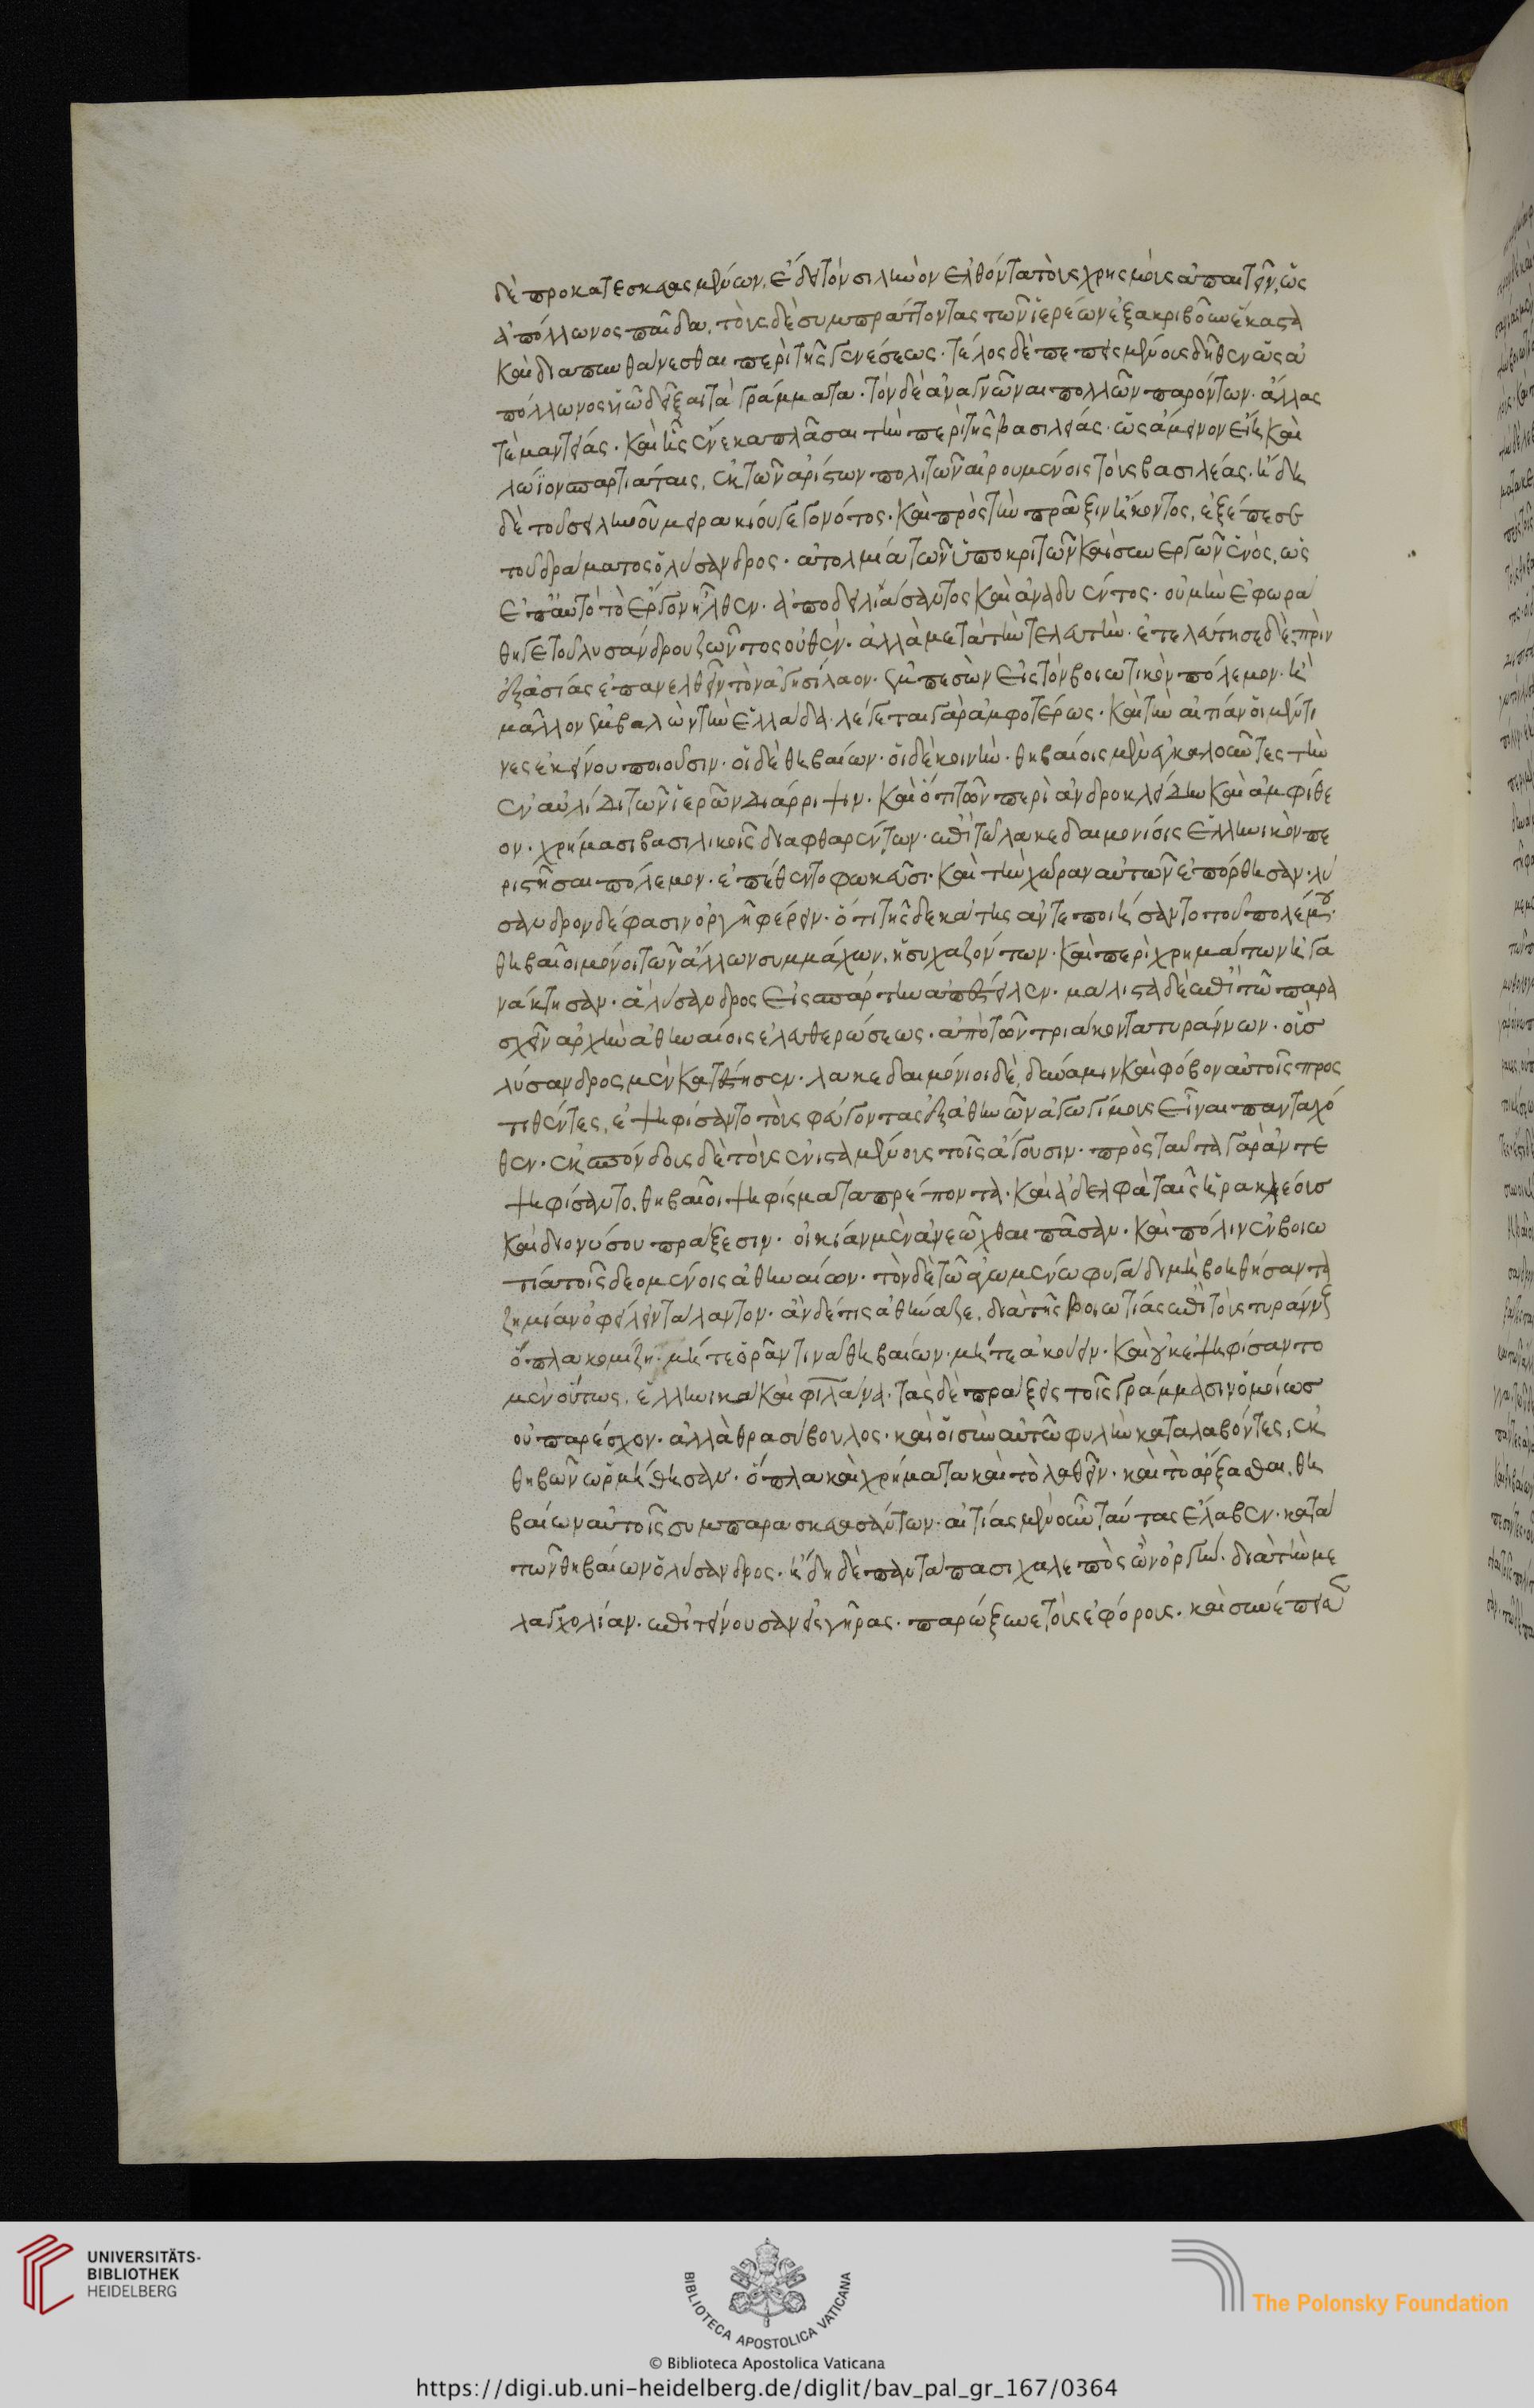 δὲ προκατεσκευασμένων, ἔδει τὸν σιληνὸν ἐλθόντα τοὺς χρησμοὺς ἀπαιτεῖν, ὡς
ἀπόλλωνος παῖδα, τοὺς δὲ συμπράττοντας τῶν ἱερέων ἐξακριβοῦν ἕκαστα
καὶ διαπυνθάνεσθαι περὶ τῆς γενέσεως· τέλος δὲ πεπεισμένους δῆθεν ὡς ἀ
πόλλωνος υἱῷ δεῖξαι τὰ γράμματα· τὸν δὲ ἀναγνῶναι πολλῶν παρόντων· ἄλλας
τὲ μαντείας· καὶ ἧς ἕνεκα πλᾶσαι τὴν περὶ τῆς βασιλείας· ὡς ἄμεινον εἴη καὶ
λώϊον σπαρτιάταις, ἐκ τῶν ἀρίστων πολιτῶν αἱρουμένοις τοὺς βασιλέας. ἤδη
δὲ τοῦ σεληνοῦ μειρακίου γεγονότος· καὶ πρὸς τὴν πρᾶξιν ἥκοντος, ἐξέπεσε
τοῦ δράματος ὁ λύσανδρος· ἀτολμίᾳ τῶν ὑποκριτῶν καὶ συνεργῶν ἑνὸς, ὡς
ἐπ' αὐτὸ τὸ ἔργον ἦλθεν· ἀποδειλιάσαντος καὶ ἀναδυέντος· οὐ μὴν ἐφωρά
θη γε τοῦ λυσάνδρου ζῶντος οὐθὲν· ἀλλὰ μετὰ τὴν τελευτὴν· ἐτελεύτησε δὲ, πρὶν
ἐξ ἀσίας ἐπανελθεῖν τὸν ἀγησίλαον· ἐμπεσὼν εἰς τὸν βοιωτικὸν πόλεμον· ἢ
μᾶλλον ἐμβαλὼν τὴν ἑλλάδα· λέγεται γὰρ ἀμφοτέρως· καὶ τὴν αἰτίαν οἱ μέν τι
νες ἐκείνου ποιοῦσιν· οἱ δὲ θηβαίων· οἱ δὲ κοινὴν· θηβαίοις μὲν ἐγκαλοῦντες τὴν
ἐν αὐλίδι τῶν ἱερῶν διάρριψιν· καὶ ὅτι τῶν περὶ ἀνδροκλείδην καὶ ἀμφίθε
ον· χρήμασι βασιλικοῖς διαφθαρέντων· ἐπὶ τῷ λακεδαιμονίοις ἑλληνικὸν πε
ριστῆσαι πόλεμον· ἐπέθεντο φωκεῦσι· καὶ τὴν χώραν αὐτῶν ἐπόρθησαν· λύ
σανδρον δέ φασιν ὀργῇ φέρειν· ὅτι τῆς δεκάτης ἀντεποιήσαντο τοῦ πολέμου·
θηβαῖοι μόνοι τῶν ἄλλων συμμάχων, ἡσυχαζόντων· καὶ περὶ χρημάτων ἠγα
νάκτησαν· ἃ λύσανδρος εἰς σπάρτην ἀπέστειλεν· μάλιστα δὲ ἐπὶ τῷ παρα
σχεῖν ἀρχὴν ἀθηναίοις ἐλευθερώσεως· ἀπὸ τῶν τριάκοντα τυράννων· οὓς
λύσανδρος μὲν κατέστησεν· λακεδαιμόνιοι δὲ, δύναμιν καὶ φόβον αὐτοῖς προς
τιθέντες, ἐψηφίσαντο τοὺς φεύγοντας ἐξ ἀθηνῶν ἀγωγίμους εἶναι πανταχό
θεν· ἐκσπόνδους δὲ τοὺς ἐνισταμένους τοῖς ἄγουσιν· πρὸς ταῦτα γὰρ ἀντε
ψηφίσαντο· θηβαῖοι ψηφίσματα πρέποντα· καὶ ἀδελφὰ ταῖς ἡρακλέους
καὶ διονύσου πράξεσιν· οἰκίαν μὲν ἀνεῶχθαι πᾶσαν· καὶ πόλιν ἐν βοιω
τίᾳ τοῖς δεομένοις ἀθηναίων· τὸν δὲ τῷ ἀγωμένῳ φυγάδι μὴ βοηθήσαντα
ζημίαν ὀφείλειν τάλαντον· ἂν δέ τις ἀθήναζε, διὰ τῆς βοιωτίας ἐπὶ τοὺς τυράννους
ὅπλα κομίζῃ· μήτε ὁρᾶν τινὰ θηβαίων· μήτε ἀκούειν· καὶ οὐκ ἐψηφίσαντο
μὲν οὕτως, ἑλληνικὰ καὶ φιλάνα· τὰς δὲ πράξεις τοῖς γράμμασιν ὁμοίως
οὐ παρέσχον· ἀλλὰ θρασύβουλος· καὶ οἱ σὺν αὐτῷ φυλὴν καταλαβόντες, ἐκ
θηβῶν ὡρμήθησαν· ὅπλα καὶ χρήματα καὶ τὸ λαθεῖν· καὶ τὸ ἄρξασθαι, θη
βαίων αὐτοῖς συμπαρασκευασάντων· αἰτίας μὲν οὖν ταύτας ἔλαβεν· κατὰ
τῶν θηβαίων ὁ λύσανδρος· ἤδη δὲ παντάπασι χαλεπὸς ὢν ὀργὴν· διὰ τὴν με
λαγχολίαν· ἐπιτείνουσαν εἰς γῆρας· παρώξυνε τοὺς ἐφόρους· καὶ συνέπεισε
UNIVERSITÄTS-
BIBLIOTHEK
HEIDELBERG
BIBLIOTECA APOSTOLICA VATICANA
The Polonsky Foundation
© Biblioteca Apostolica Vaticana
https://digi.ub.uni-heidelberg.de/diglit/bav_pal_gr_167/0364